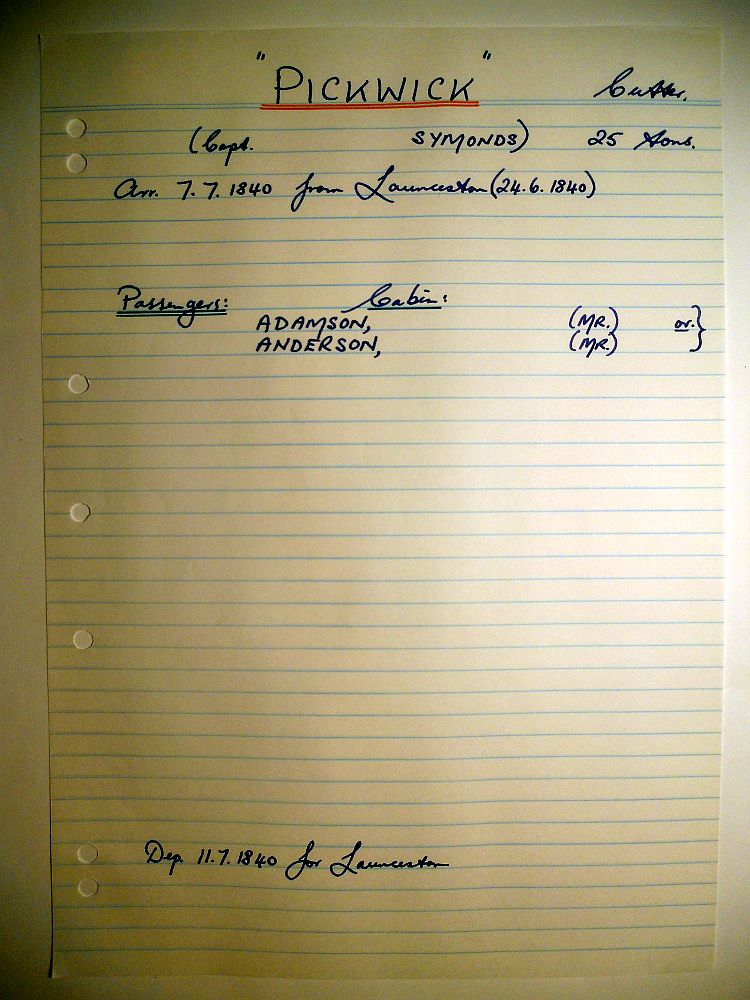 "PICKWICK" Cutter.
(Capt. SYMONDS) 25 tons.
Arr. 7.7.1840 from Launceston (24.6.1840)
Passengers: Cabin:
ADAMSON, (MR.) or.}
ANDERSON, (MR.)
Dep. 11.7.1840 for Launceston